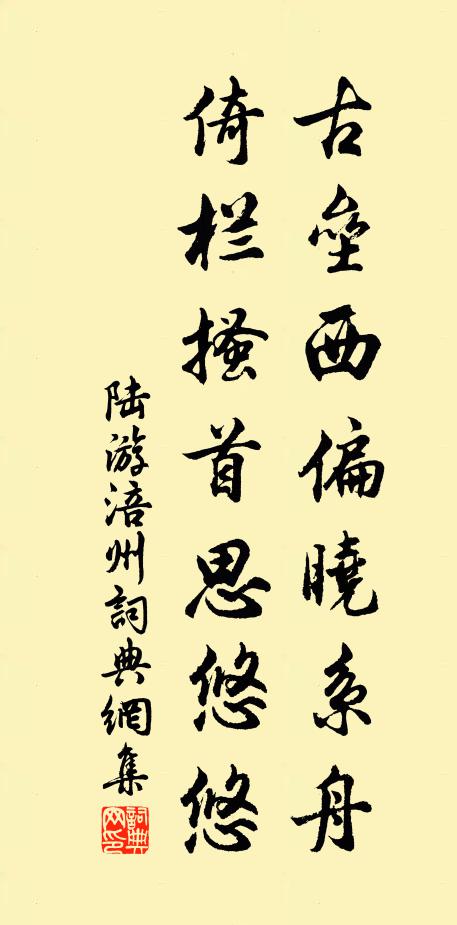 古垒西偏曉系舟
倚栏搔首思悠悠
陆游涪州詞典網集
詞典网印